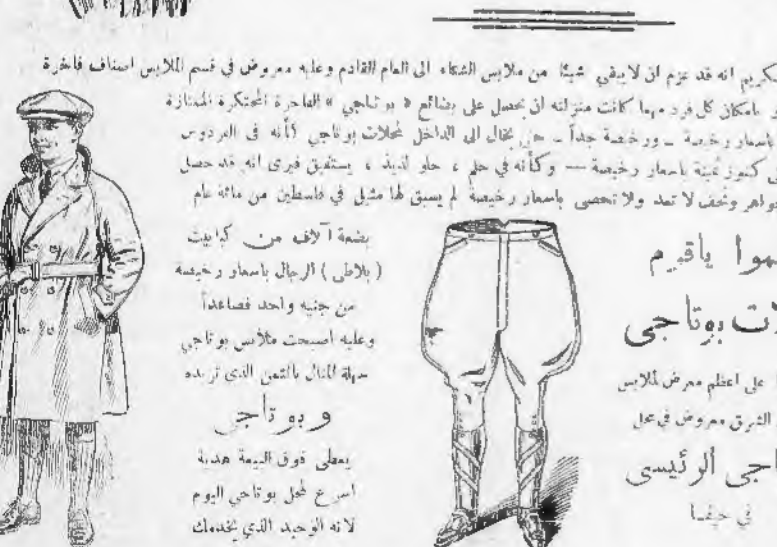 كريم انه قد عزم ان لا يبقي شيئا من ملابس الشتاء الى العام القادم وعليه معروض في قسم الملابس اصناف فاخرة
بامكان كل فرد مهما كانت منزلته ان يحصل على بضائع « بوتاجي » الفاخرة المحتكرة الممتازة
باسعار رخيصة ــ ورخيصة جداً ــ حتى يخال الى الداخل لمحلات بوتاجي كأنه في الفردوس
كنوز ثمينة باسعار رخيصة — وكأنه في حلم ، حلم لذيذ ، يستفيق فيرى انه قد حصل
وتحف لا تعد ولا تحصى باسعار رخيصة لم يسبق لها مثيل في فلسطين من مائة عام
بضعة آلاف من كبابيت
( بلاطى ) الرجال باسعار رخيصة
من جنيه واحد فصاعداً
وعليه اصبحت ملابس بوتاجي
سهلة المنال بالثمن الذي تريده
و بو تاجي
يعطى فوق البيعة هدية
اسرع لمحل بوتاجي اليوم
لانه الوحيد الذي يخدمك
ياقوم
بوتاجى
على اعظم معرض للملابس
الشرق معروض في محل
اجى الرئيسى
في حيفا